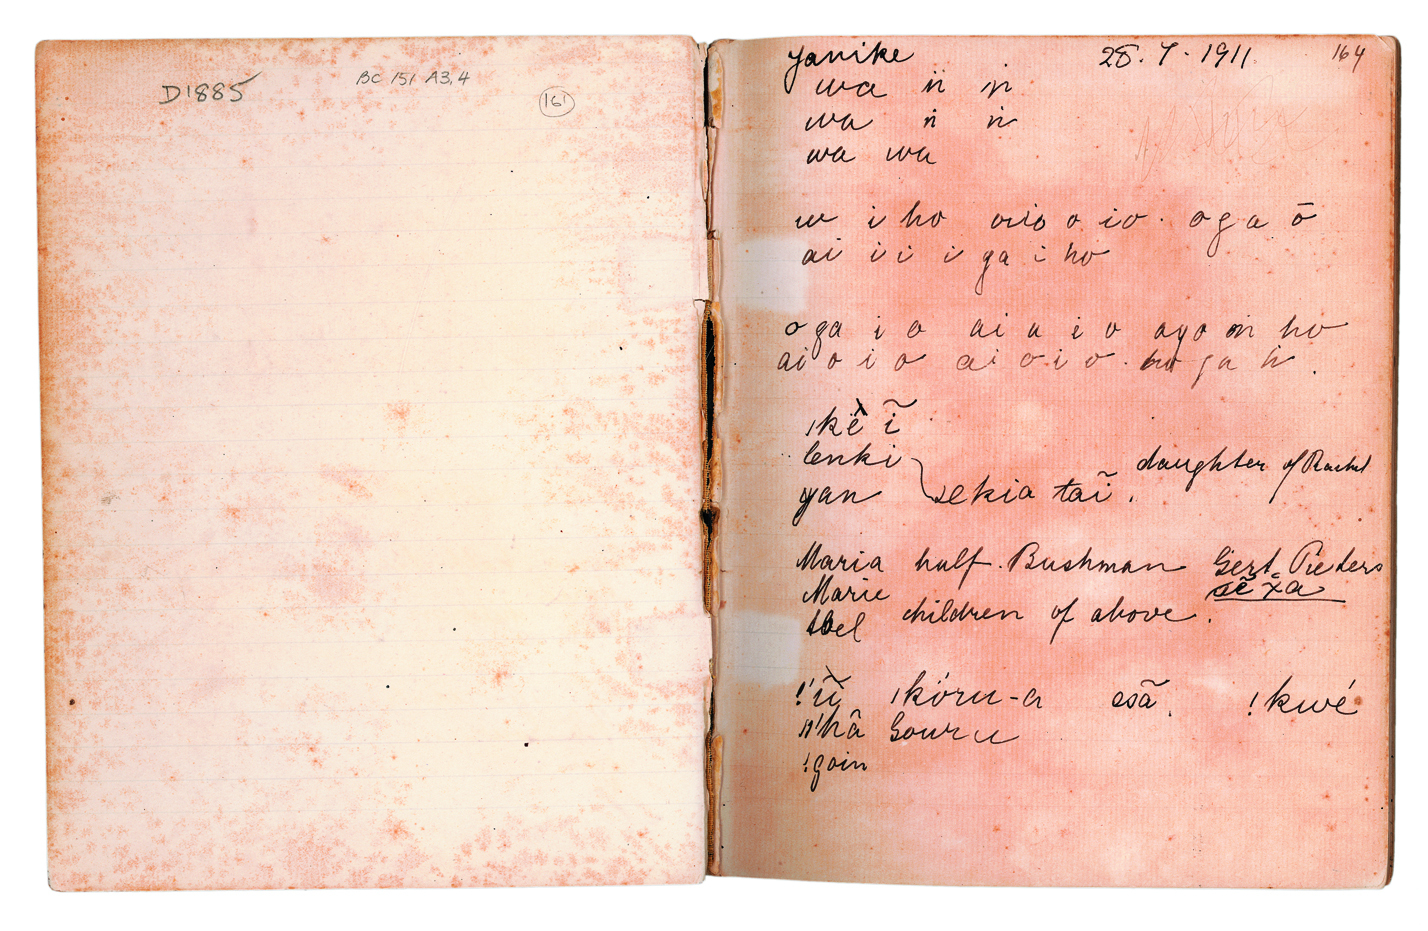 D1885
BC 151 A3,4
161
Yanike 28.7.1911 164
wa n̈ n̈
wa n̈ n̈
wa wa
w i ho o i o o i o . o g a ō
ai i i i ga i ho
o ga i o ai a i o ho
ai o i o ai o i o . ga
ĩ
lenki
yan sekia taĩ . daughter of Rachel
Maria half Bushman Gert Pieters
Marie sẽ x̃a
Abel children of above .
ǀkóru-a esã . !kwé
Gouru
!goin